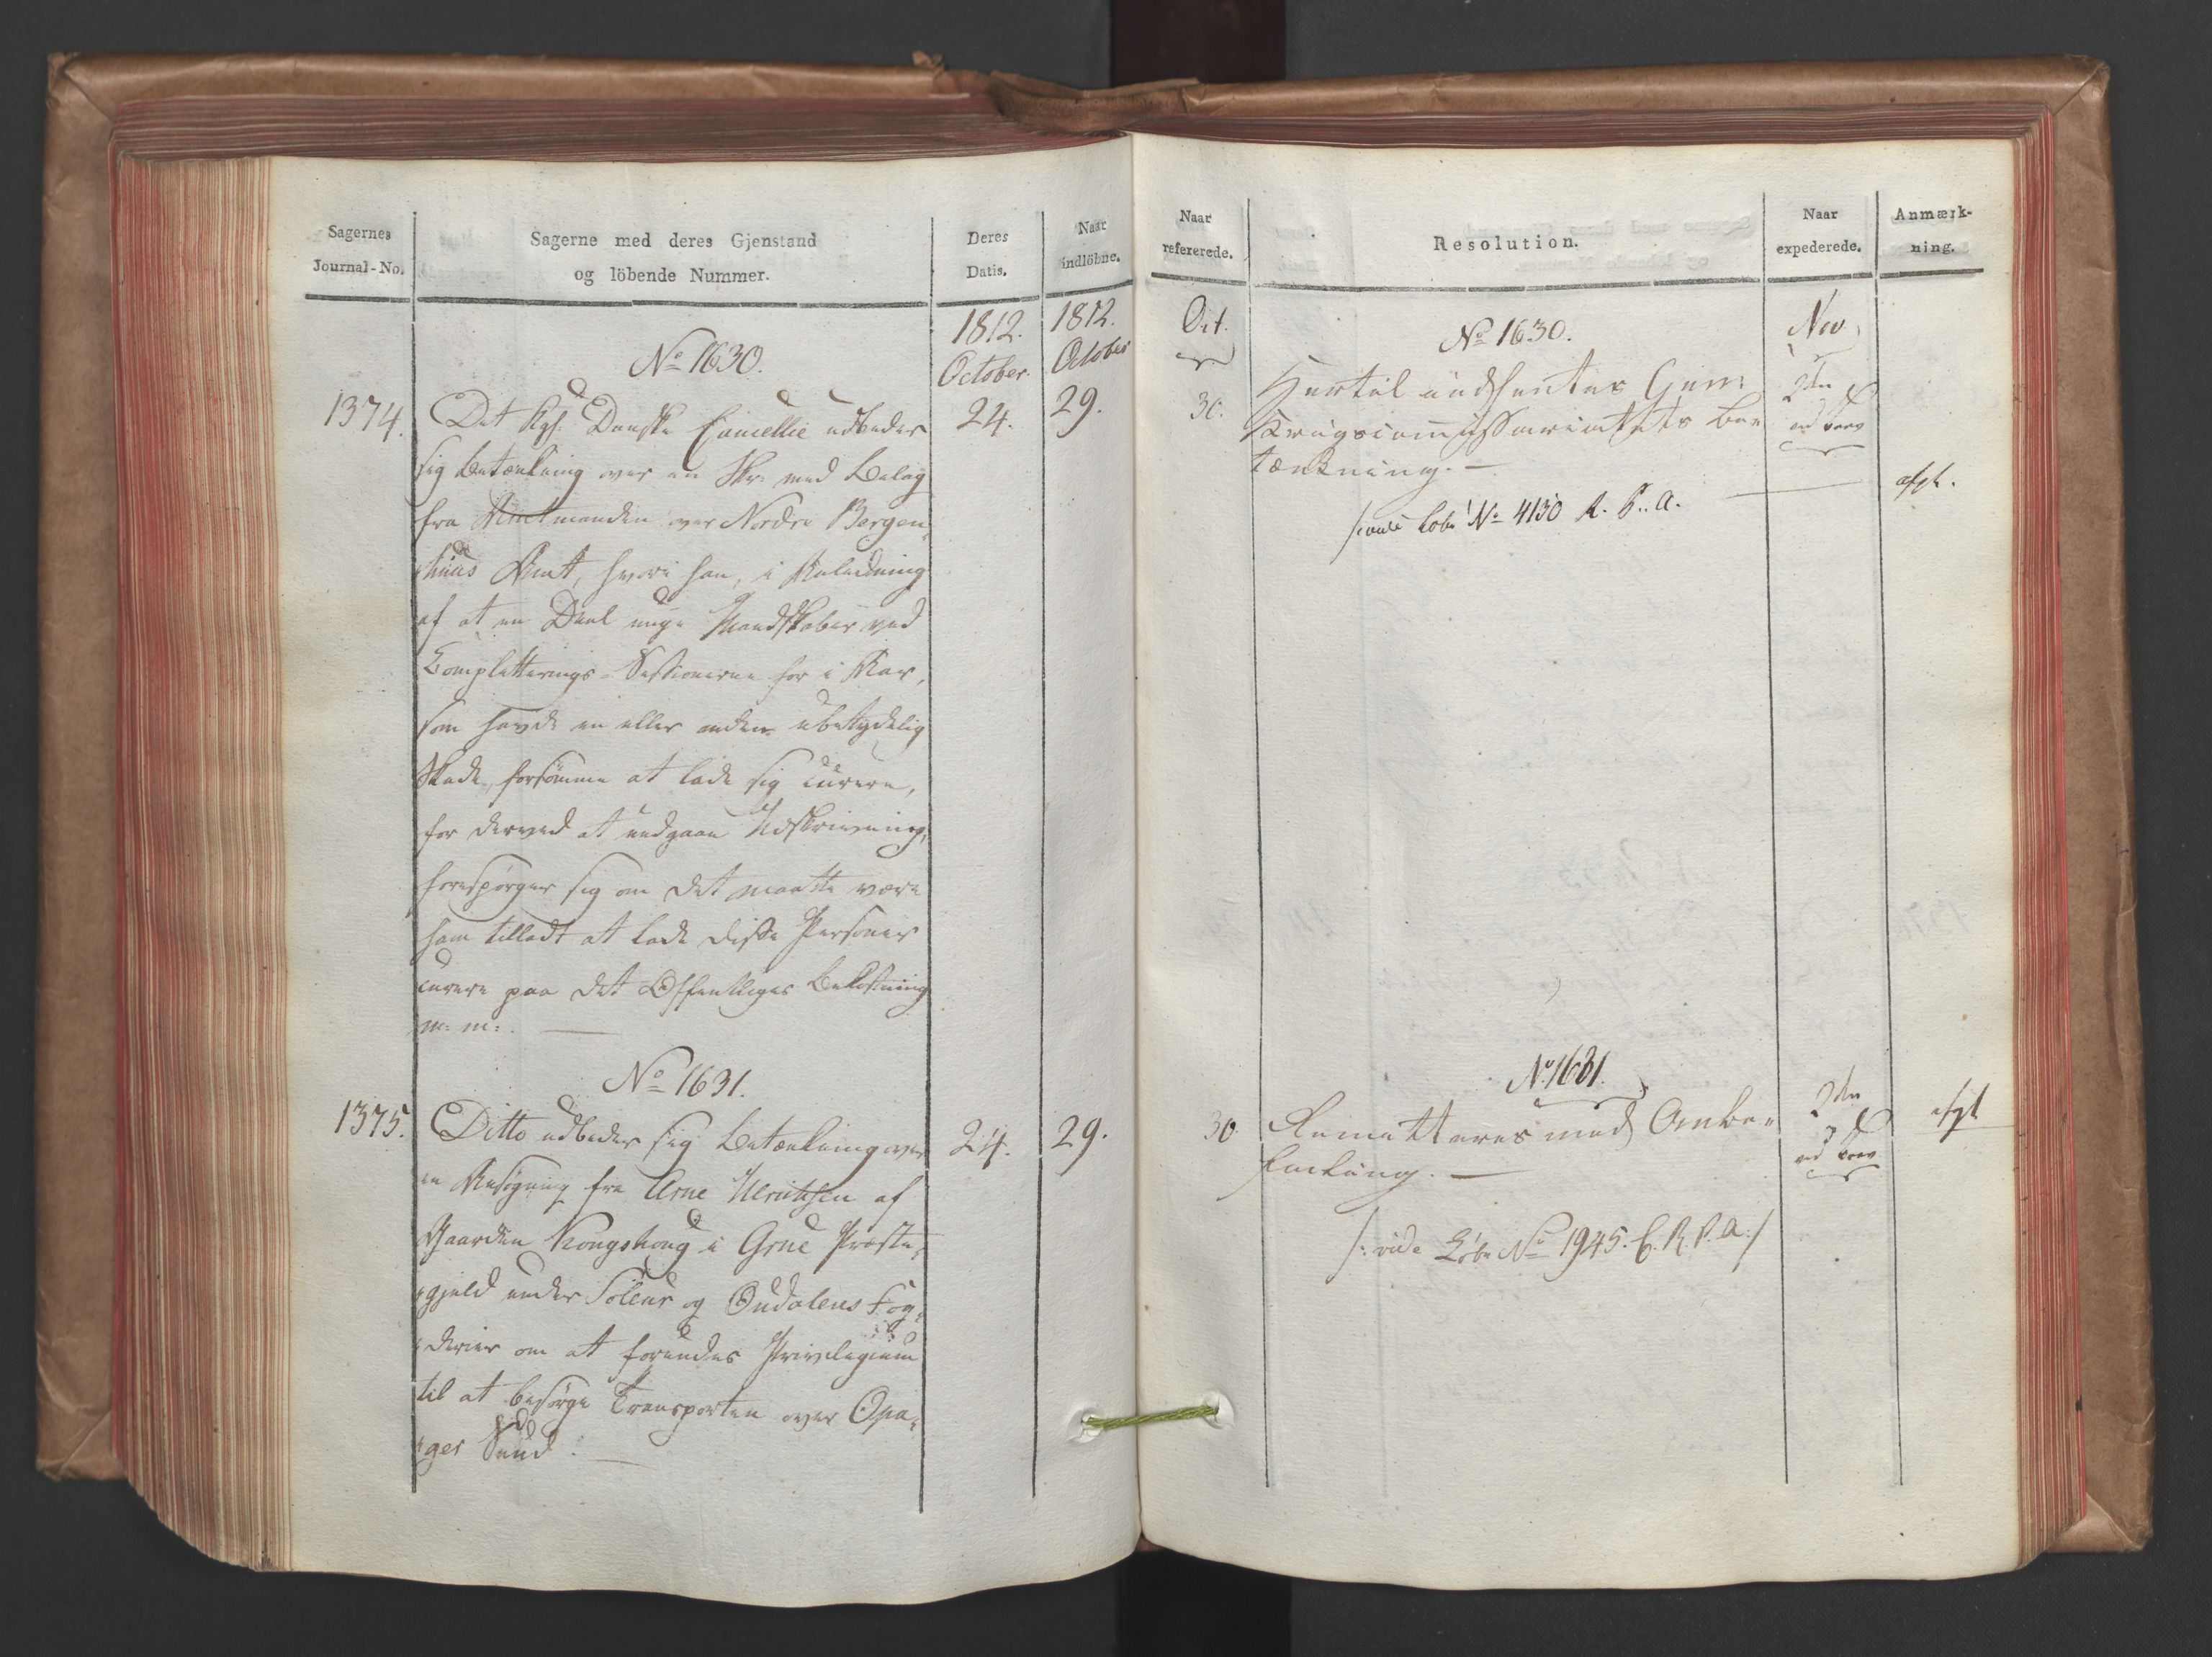 Sagernes
Journal-No.
Sagerne med deres Gjenstand
og löbende Nummer.
Deres
Datis.
Naar
indlöbne.
1812.
October.
1812.
October
No 1630.
1374.
Det Kgl: Danske Cancellie udbeder
24.
29.
sig Betænkning over en Skr: med Belæg
fra Amtmanden over Nordre Bergen-
huus Amt, hvori han, i Anledning
af at en Deel unge Mandskaber ved
Completterings-Sessionerne for i Aar,
som havde en eller anden ubetydelig
Skade, forsømme at lade sig curere,
for derved at undgaae Udskrivning,
forespørger sig om det maatte være
ham tilladt at lade disse Personer
curere paa det Offentliges Bekostning
m: m:.
No 1631.
1375.
Ditto udbeder sig Betænkning over
24.
29.
en Ansøgning fra Arne Ulrichsen af
Gaarden Kongshoug i Grue Præste-
gjeld under Soleur og Oudalens Fog-
derier om at forundes Privilegium
til at besørge Transporten over Opa-
ger Sund.
Naar
refererede.
Resolution.
Naar
expederede.
Anmærk-
ning.
Oct.
No 1630.
Nov
30.
Hertil indhentes Gen:
2den
Krigscommissariatets Be-
ved Brev
tænkning.
afgl.
/:vide Løbe No 4130 A. P. A.
No 1631.
30.
Remitteres med Anbe-
2den
afgl
faling.
ved Brev
/: vide Løbe No 1945. C. R. P. A:/